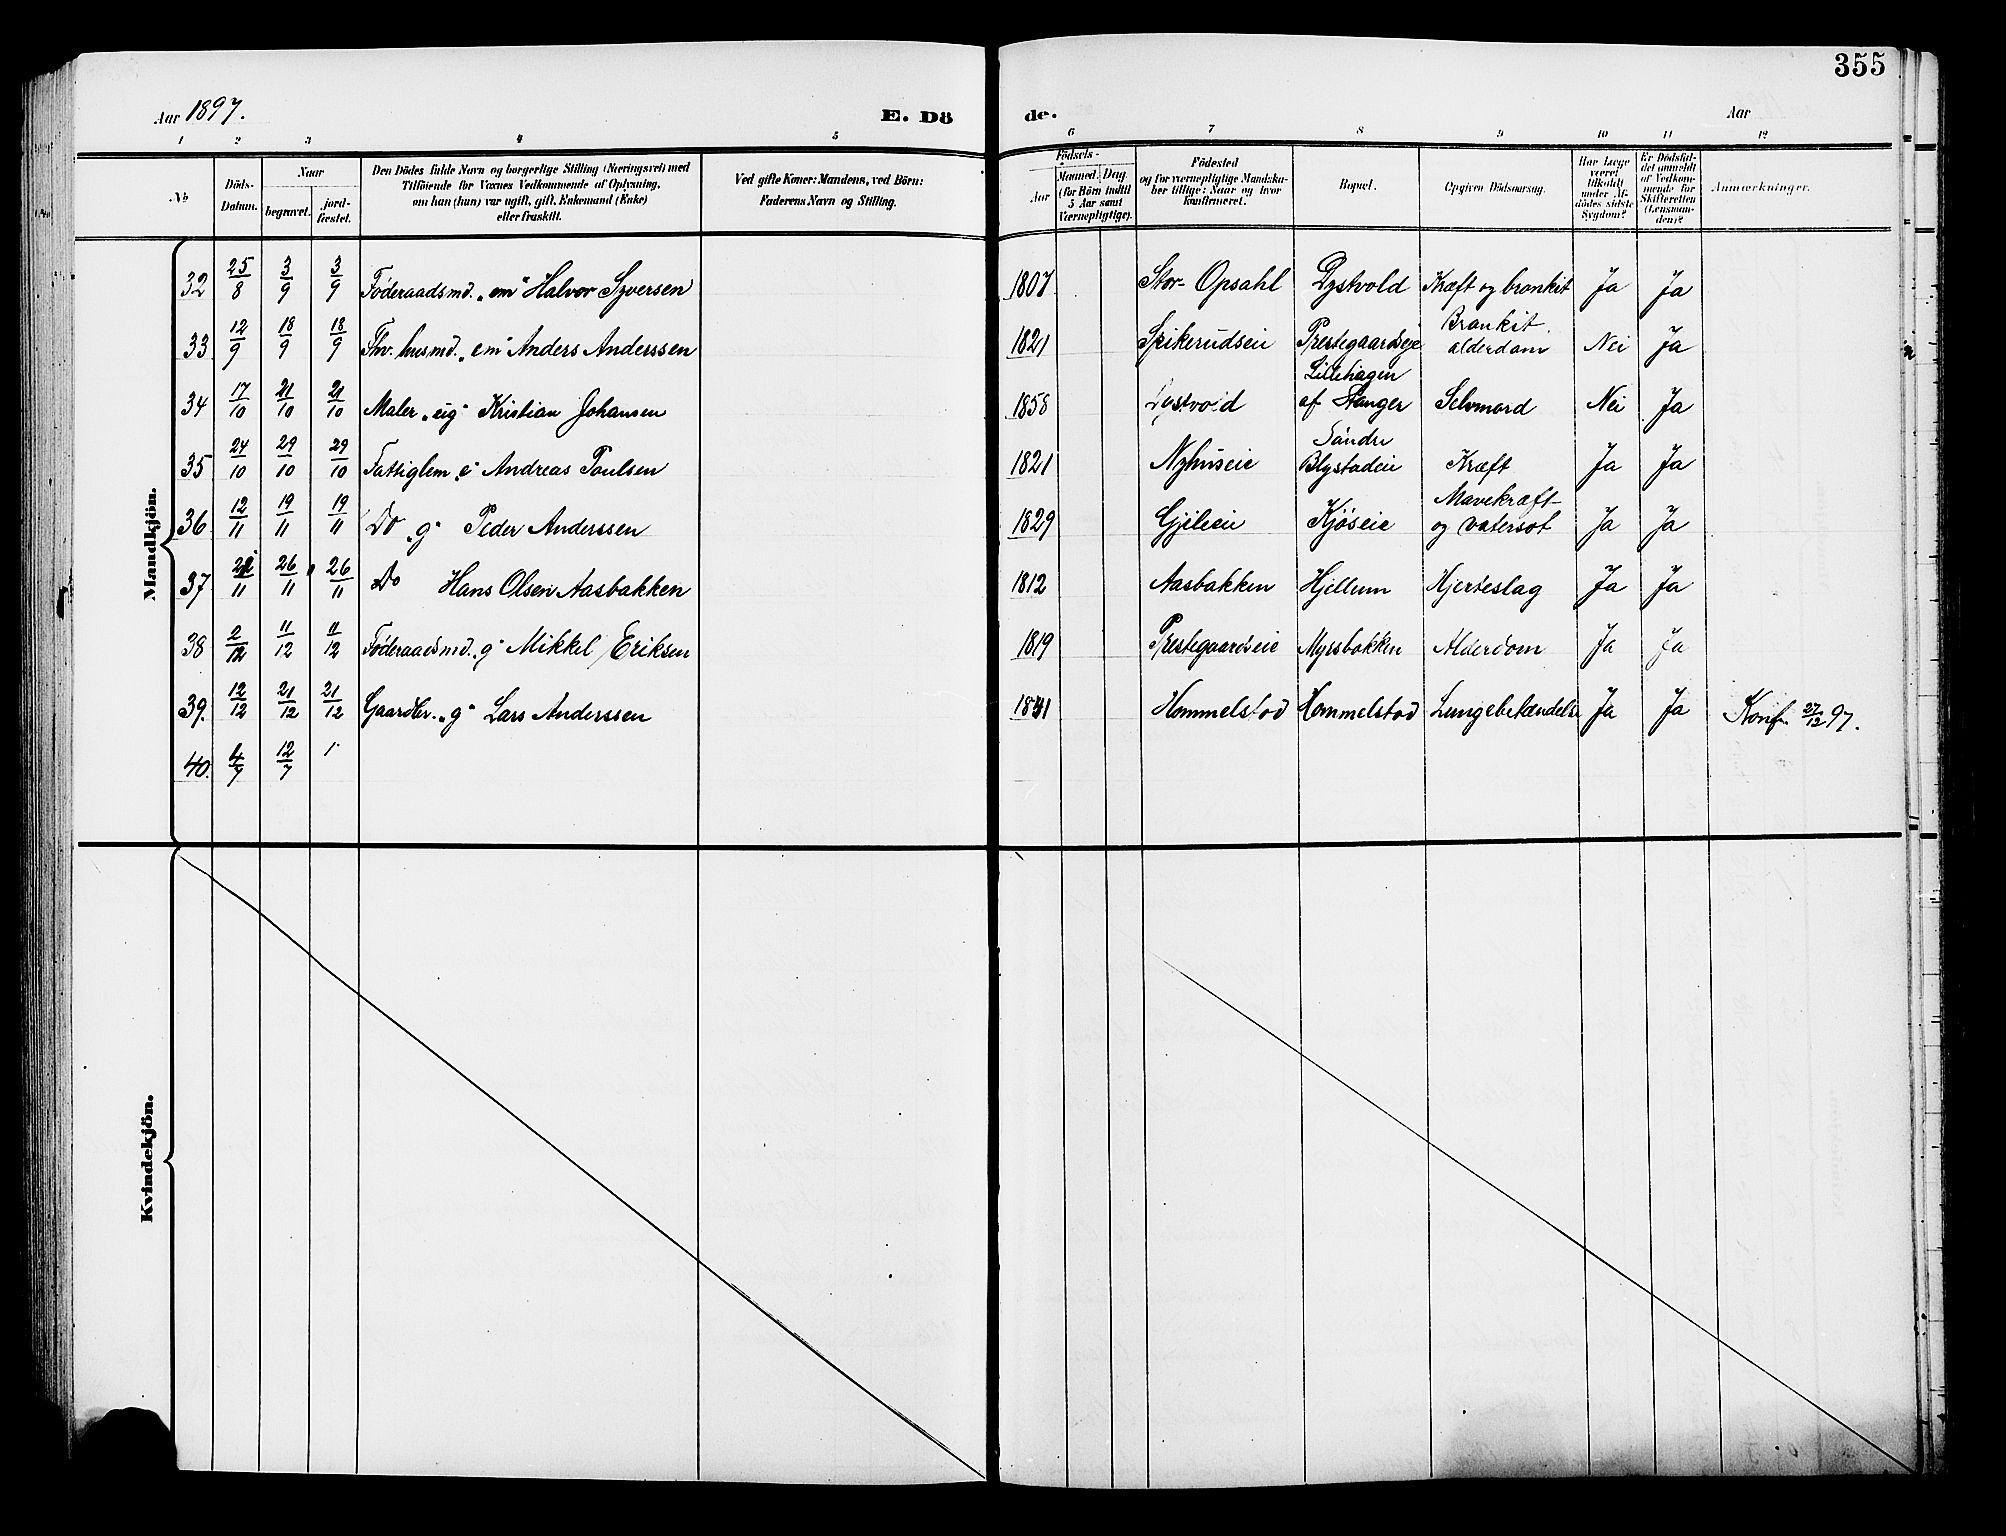 355
Aar 1897.
E. Dö
de.
Aar
1 2 3 4 5 6 7 8 9 10 11 12
No
Döds-Datum.
Naar
begravet.
jord-fæstet.
Den Dödes fulde Navn og borgerlige Stilling (Næringsvei) med
Tilföiende for Voxnes Vedkommende af Oplysning,
om han (hun) var ugift, gift, Enkemand (Enke)
eller fraskilt.
Ved gifte Koner: Mandens, ved Börn:
Faderens Navn og Stilling.
Födsels-
Aar
Maaned. Dag
(for Börn indtil
5 Aar samt
Værnepligtige).
Födested
og for værnepligtige Mandska-
ber tillige: Naar og hvor
konfirmeret.
Bopæl.
Opgiven Dödsaarsag.
Har Læge
været
tilkaldt
under Af-
dödes sidste
Sygdom?
Er Dödsfal-
det anmeldt
af Vedkom-
mende for
Skifteretten
(Lensman-
den)?
Anmærkninger.
Mandkjön.
32 25/8 3/9 3/9 Föderaadsmd. „em" Halvor Syversen 1807 Stor-Opsahl Dystvold Kræft og bronkit Ja Ja
33 12/9 18/9 18/9 Fhv. husmd. „em" Anders Anderssen 1821 Spikerudseie Prestegaardseie Bronkit. alderdom Nei Ja
34 17/10 21/10 21/10 Maler „eig" Kristian Johansen 1858 Dystvold Lillehagen af Stanger Selvmord Nei Ja
35 24/10 29/10 29/10 Fattiglem „e" Andreas Poulsen 1821 Nyhuseie Söndre Blystadeie Kræft Ja Ja
36 12/11 19/11 19/11 Do „g" Peder Anderssen 1829 Gjileie Kjöseie Mavekræft og vatersot Ja Ja
37 /11 26/11 26/11 Do Hans Olsen Aasbakken 1812 Aasbakken Hjellum Hjerteslag Ja Ja
38 2/12 11/12 11/12 Föderaadsmd. „g" Mikkel Eriksen 1819 Prestegaardseie Myrsbakken Alderdom Ja Ja
39. 12/12 21/12 21/12 Gaardbr. „g" Lars Anderssen Hommelstad Hommelstad Lungebetændelse Ja Ja Konf. 27/12 97.
40. 4/7 12/7
Kvindekjön.